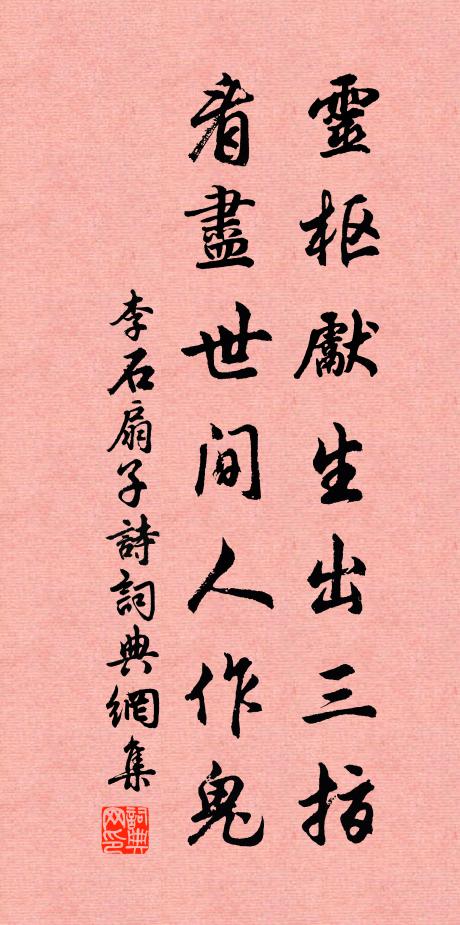 靈樞獻生出三指
看盡世間人作鬼
李石扇子詩詞典網集
詞典网印